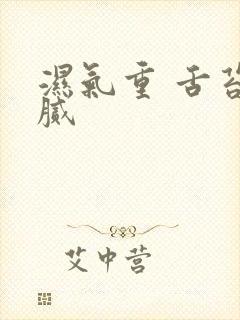 濕氣重 舌苔
膩
艾中营